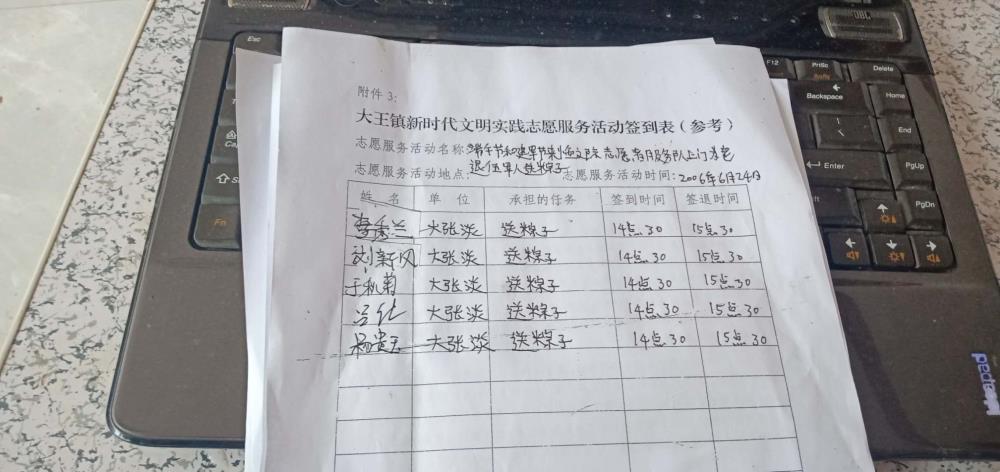 附件 3:
大王镇新时代文明实践志愿服务活动签到表(参考)
志愿服务活动名称:端午节和建军节来 志愿者服务队上门为老
志愿服务活动地点: 退伍军人送粽子 志愿服务活动时间:2006年6月24日
姓 名 单 位 承担的任务 签到时间 签退时间
李秀兰 大张淡 送粽子 14点30 15点30
刘新风 大张淡 送粽子 14点30 15点30
于秋菊 大张淡 送粽子 14点30 15点30
吕化 大张淡 送粽子 14点30 15点30
杨贵玉 大张淡 送粽子 14点30 15点30
Esc
F12
PrtSc
SysRq
Delete
Backspace
Home
End
Enter
PgUp
PgDn
Fn
JBL
ideapad